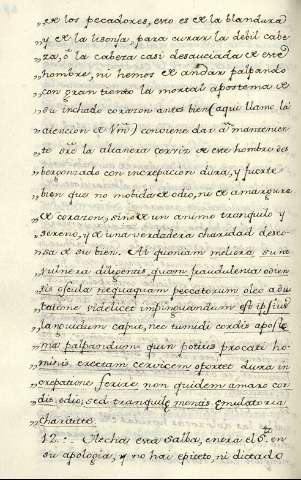 „de los pecadores, esto es de la blandura
„y de la lisonja, para curar la debil cabe-
„za, ò la cabeza casi desauciada de este
„hombre, ni hemos de andar palpando
„con gran tiento la mortal apostema de
„su inchado corazon antes bien (aqui llamo la
„atencion de Vm) conviene dar à mantenien-
„te la altanera cerviz de este hombre des
„bergonzado con increpacion dura, y fuerte
„bien que no mobida de odio, ni de amargura
„de corazon, sino de un animo tranquilo y
„sereno, y de una verdadera charidad deseo-
„sa de su bien. At quoniam meliora sunt
„vulnera diligentis, quam fraudulenta oden-
„tis oscula nequaquam peccatorum oleo adu-
„latione videlicet impinguandum est ipsius
„languidum caput, nec tumidi cordis aposte
„ma palpandum: quin potius procati ho-
„minis erectam cervicem oportet dura in
„crepatione ferire non quidem amaro cor-
„dis odio, sed tranquilę mentis ęmulatoria
„charitate.
12. Hecha esta Salba, entra el P. en
su apologia, y no hai epiteto, ni dictado